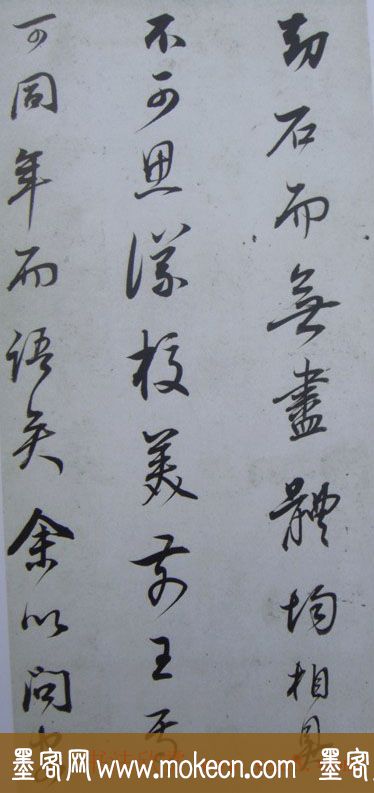 劫石而無盡體均相具
不可思議校美前王焉
可同年而語矣余以問安
墨客网 www.mokecn.com 墨客网